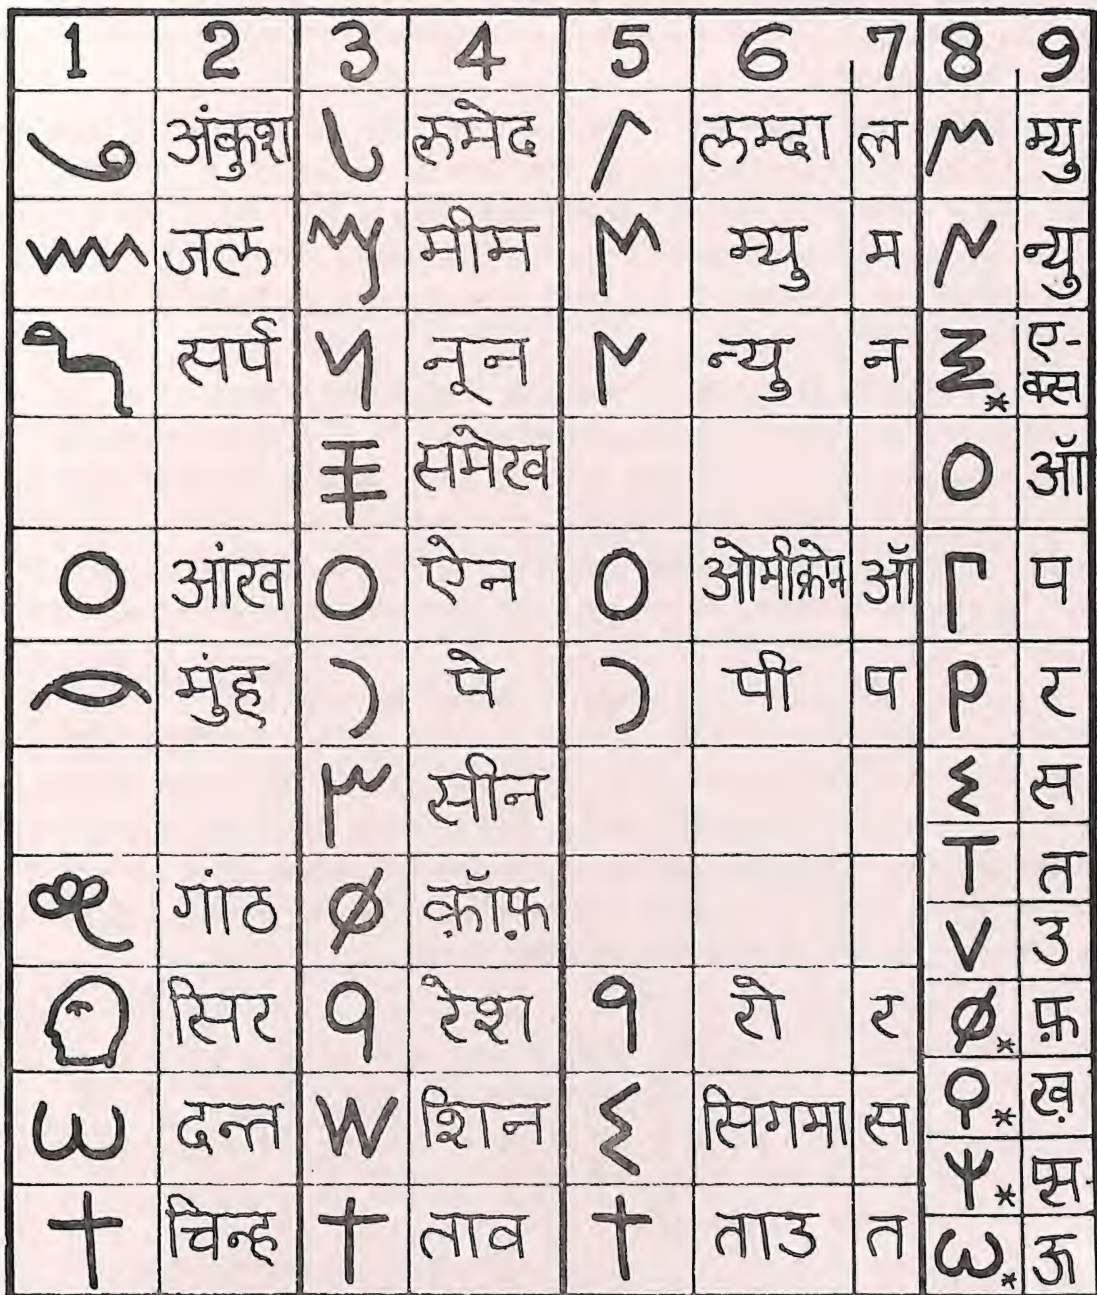 1 2 3 4 5 6 7 8 9
अंकुश लमेद लम्दा ल म्यु
जल मीम म्यु म न्यु
सर्प नून न्यु न ए-क्स
समेख ऑ
आंख O ऐन O ओमीक्रोन ऑ प
मुंह पे पी प P र
सीन स
T त
गांठ क़ॉफ़ V उ
सिर रेश रो र फ़
दन्त W शिन सिगमा स ख़
Ψ प्स
चिन्ह ताव ताउ त ω ऊ